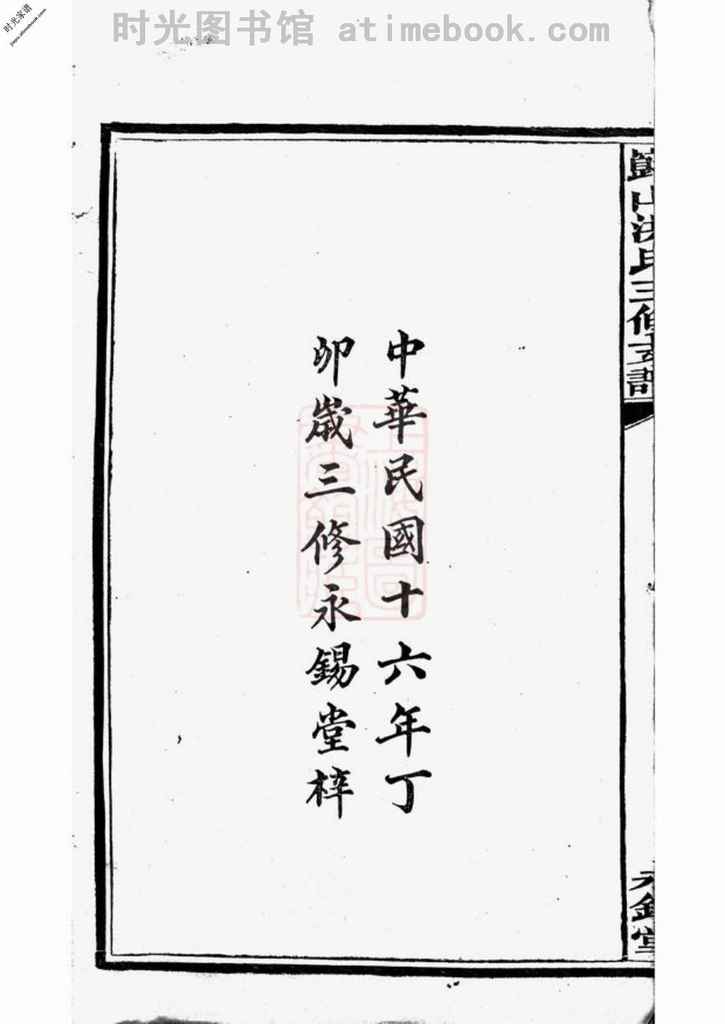 时光图书馆 atimebook.com
时光家谱
中華民國十六年丁
卯歲三修永錫堂梓
山洪氏三修支譜
永錫堂